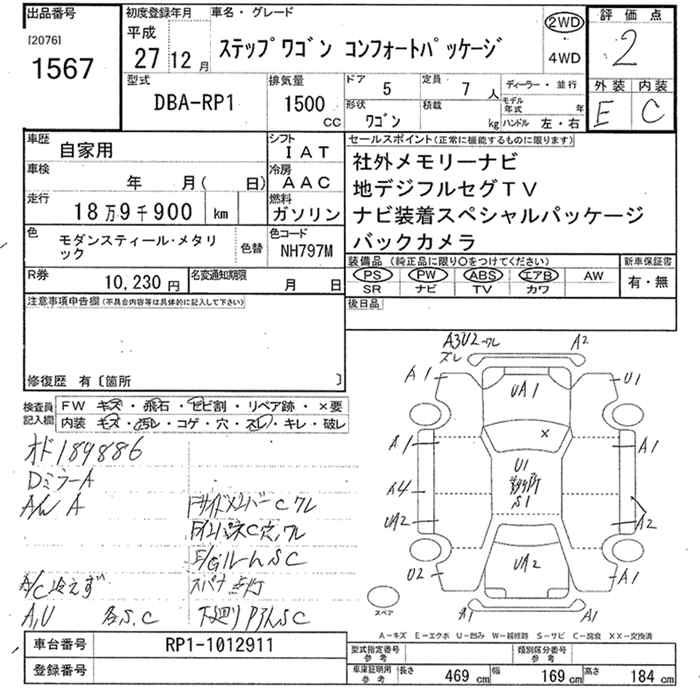 出品番号
[2076]
1567
初度登録年月
平成
27年 12月
車名・グレード
ステップワゴン コンフォートパッケージ
2WD
4WD
評価点
2
外装 内装
E C
型式
DBA-RP1
排気量
1500
CC
ドア 5
定員 7 人
形状 ワゴン
積載 kg
ディーラー・並行
モデル年式 年
ハンドル 左・右
車歴
自家用
シフト
IAT
車検
年 月( 日)
冷房
AAC
走行
18万9千900 km
燃料
ガソリン
色
モダンスティール・メタリ
ック
色替
色コード
NH797M
R券
10,230円
名変通知期限
月 日
セールスポイント(正常に機能するものに限ります)
社外メモリーナビ
地デジフルセグTV
ナビ装着スペシャルパッケージ
バックカメラ
装備品 (純正品に限り○をつけてください)
PS PW ABS エアB AW
SR ナビ TV カワ
新車保証書
有・無
後日品
注意事項申告欄(不具合内容等は具体的に記入して下さい)
修復歴 有〔箇所 〕
検査員
記入欄
FW キズ・飛石・ヒビ割・リペア跡・×要
内装 キズ・汚レ・コゲ・穴・スレ・キレ・破レ
オド189886
Dミラー A
A/W A
FサイドメンバーC クレ
E/GルームSC
A/C冷えず
スパナ点灯
A,U
各S.C
下廻りアラルSC
A3U2-ワレ
ズレ
A2
A1
U1
UA1
A1
A1
X
U1
多数所
S1
A4
UA2
A2
UA2
U2
A1
A1
A1
スペア
A-キズ E-エクボ U-凹み W-補修跡 S-サビ C-腐食 XX-交換済
車台番号
RP1-1012911
登録番号
型式指定番号
参考
類別区分番号
参考
車庫証明用
参考
長さ 469 cm
幅 169 cm
高さ 184 cm